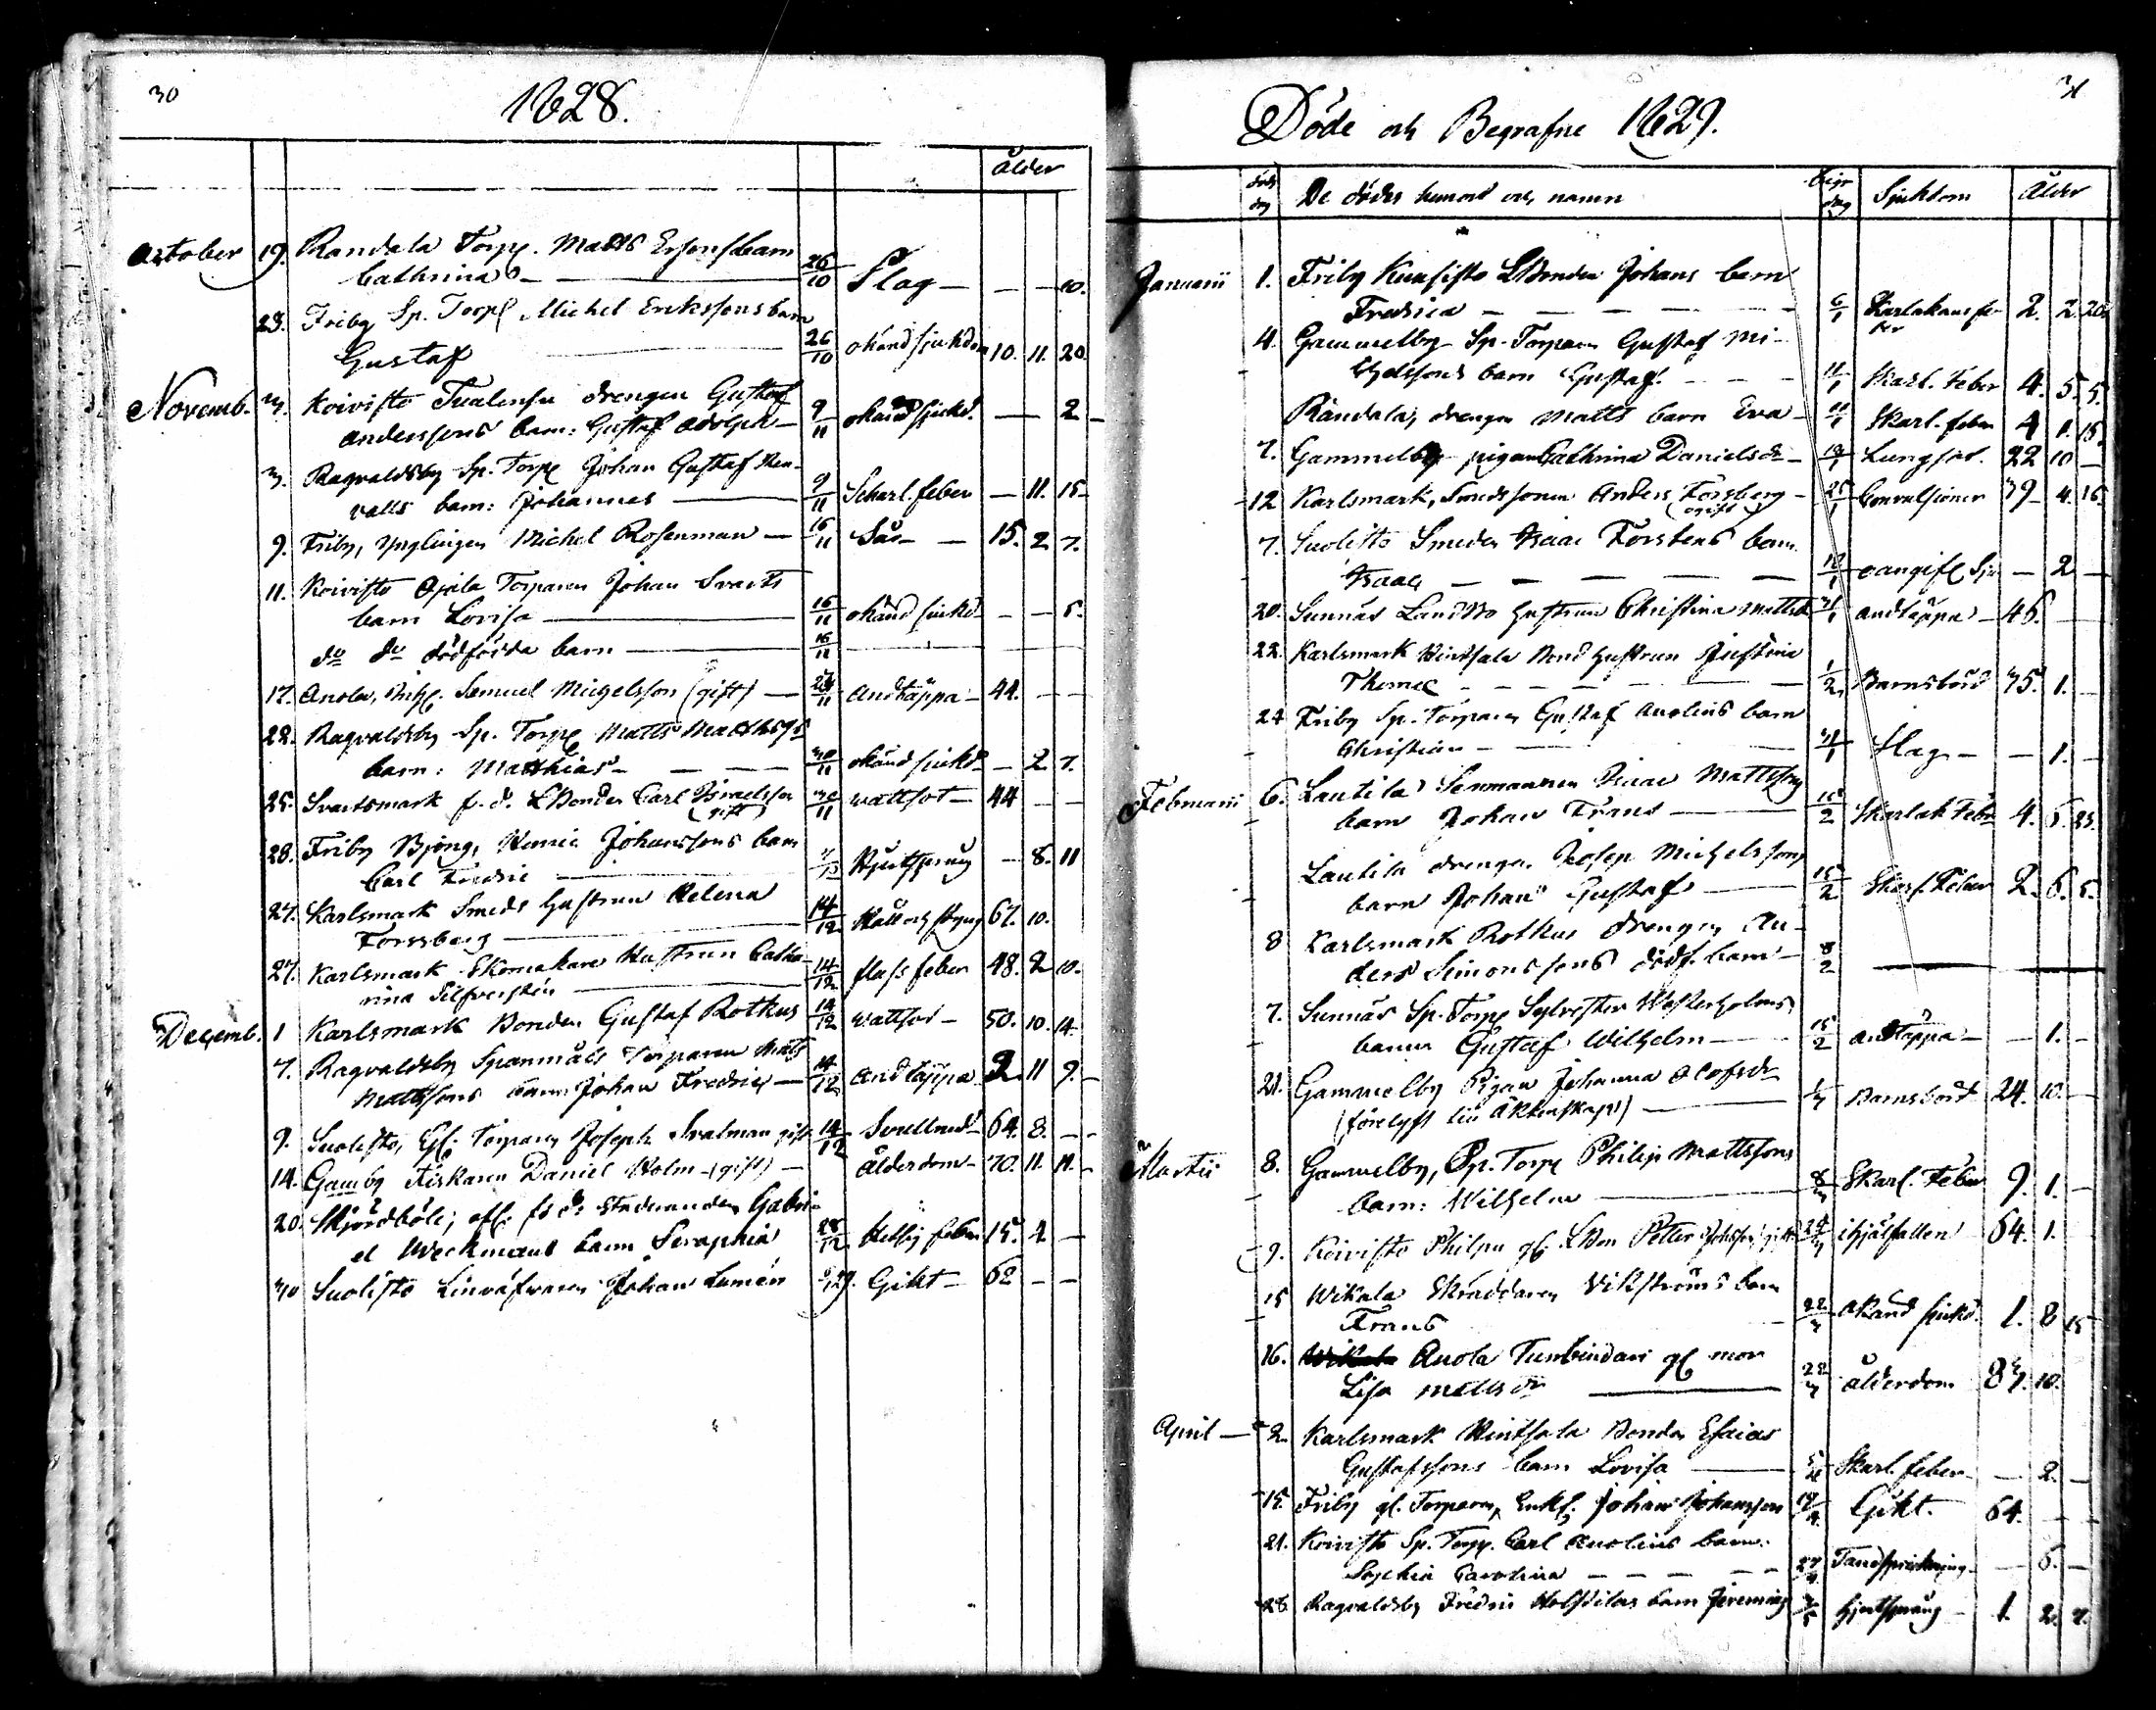 30
1828.
Ålder
October 19. Randala Torp. Matts Ersons barn
Cathrina 26/10 Slag 10.
23. Friby Sp. Torp Michel Erikssons barn
Gustaf 26/10 okänd sjukdom 10. 11. 20.
Novemb. 3. Koivisto drengen Gustaf
Anderssons barn: Gustaf Adolph 9/11 okänd sjukd. 2
3. Ragvaldsby Sp. Torp Johan Gustaf
valls barn: Johannes 9/11 Scharl. feber 11. 15
9. Friby, Ynglingen Michel Rosenman 16/11 Sår 15. 2. 7.
11. Koivisto Ojala Torparen Johan Svarts
barn Lovisa 16/11 okänd sjukd 5.
do do dödfödda barn 16/11
17. Anola, Inh. Samuel Michelsson (gift) /11 Andtäppa 44.
22. Ragvaldsby Sp. Torp Matts
barn: Matthias 30/11 okänd sjukd 2. 7.
25. Svartsmark f.d. LBonden Carl Israelsson
(gift) 30/11 wattsot 44
28. Friby Björg, Johanssons barn
Carl Fredric 8. 11
27. Karlsmark Smeds Hustrun Helena
Forssberg 14/12 Håll och styng 67. 10.
27. Karlsmark Skomakare Hustrun Catha-
rina Silfversten 14/12 feber 48. 2 10.
Decemb. 1 Karlsmark Bonden Gustaf Rotkus 14/12 wattsot 50. 10. 14.
7. Ragvaldsby Spanmåls Torparen Matts
Mattssons barn Johan Fredric 14/12 andtäppa 2 11 9.
9. Suolisto, Torparen Joseph Svalman gift 14/12 64. 8.
14. Gamby Fiskaren Daniel Holm (gift) ålderdom 70. 11. 11.
20. Skjördböle, Gabri-
el Weckmans barn Seraphia 28/12 feber 15. 2
30 Suolisto Linväfvaren Johan Lumén Gikt 62
31
Döde och Begrafne 1829.
döds dag De dödes hemort och namn begr dag Sjukdom Ålder
Januarii 1. Friby LBonden Johans barn
Fredrica 6/1 Skarlakans fe-
ber 2. 2. 20
4. Gammelby Sp. Torparen Gustaf Mi-
chelssons barn Gustaf 11/1 Skarl. Feber 4. 5. 5.
Randala, drengen Matts barn Eva 11/1 Skarl. feber 4 1. 15.
7. Gammelby pigan Cathrina Danielsdr Lungsot. 22 10
12 Karlsmark, Smedssonen Anders Forsberg
(ogift) 25/1 Convulsioner 39 4. 16
7. Suolisto Smeden Isaac Forstens barn
Isaac 18/1 oangifl. Sju 2
20. Sunnäs Landbo Hustrun Christina Mattsdr andtäppa 46.
22. Karlsmark Hintsala Bond Hustrun Justina
Thomae 1/2 Barnsbörd 35. 1.
24 Friby Sp. Torparen Gustaf Anolins barn
Christian Slag 1.
Februarii 6. Lautila Isaac Mattssons
barn Johan Frans 15/2 Skarlak Feber 4. 5. 23.
Lautila drengen Josep Michelssons
barn Johan Gustaf 15/2 Skarl. Feber 2. 6. 5.
8 Karlsmark Rotkus drengen An-
ders Simonssons dödf. barn 8/2
7. Sunnäs Sp. Torp Sylvester Westerholms
barn Gustaf Wilhelm 15/2 andtäppa 1.
21. Gammelby Pigan Johanna Olofsdr
1/3 Barnsbörd 24. 10.
Martii 8. Gammelby, Sp. Torp Philip Mattssons
barn: Wilhelm 8/3 Skarl. Feber 9. 1.
9. Koivisto Philpu Petter ihjälfallen 64. 1.
15 Wikala Skräddaren Vikströms barn
Frans 22/3 okänd sjukd. 1. 8 15
16. Anola Tunbindari gl mor
Lisa Mattsdr 22/3 ålderdom 83. 10.
April 2. Karlsmark Hintsala Bonden Esaias
Gustafssons barn Lovisa 5/4 Skarl. feber 2.
15. Friby gl. Torparen, Enkl. Johan Johansson 19/4 Gikt. 64.
21. Koivisto Sp. Torp. Carl Anolins barn
Sophia Carolina Tandsprickning 6.
28 Ragvaldsby Fredric barn 3/5 hjertsprång 1 2.